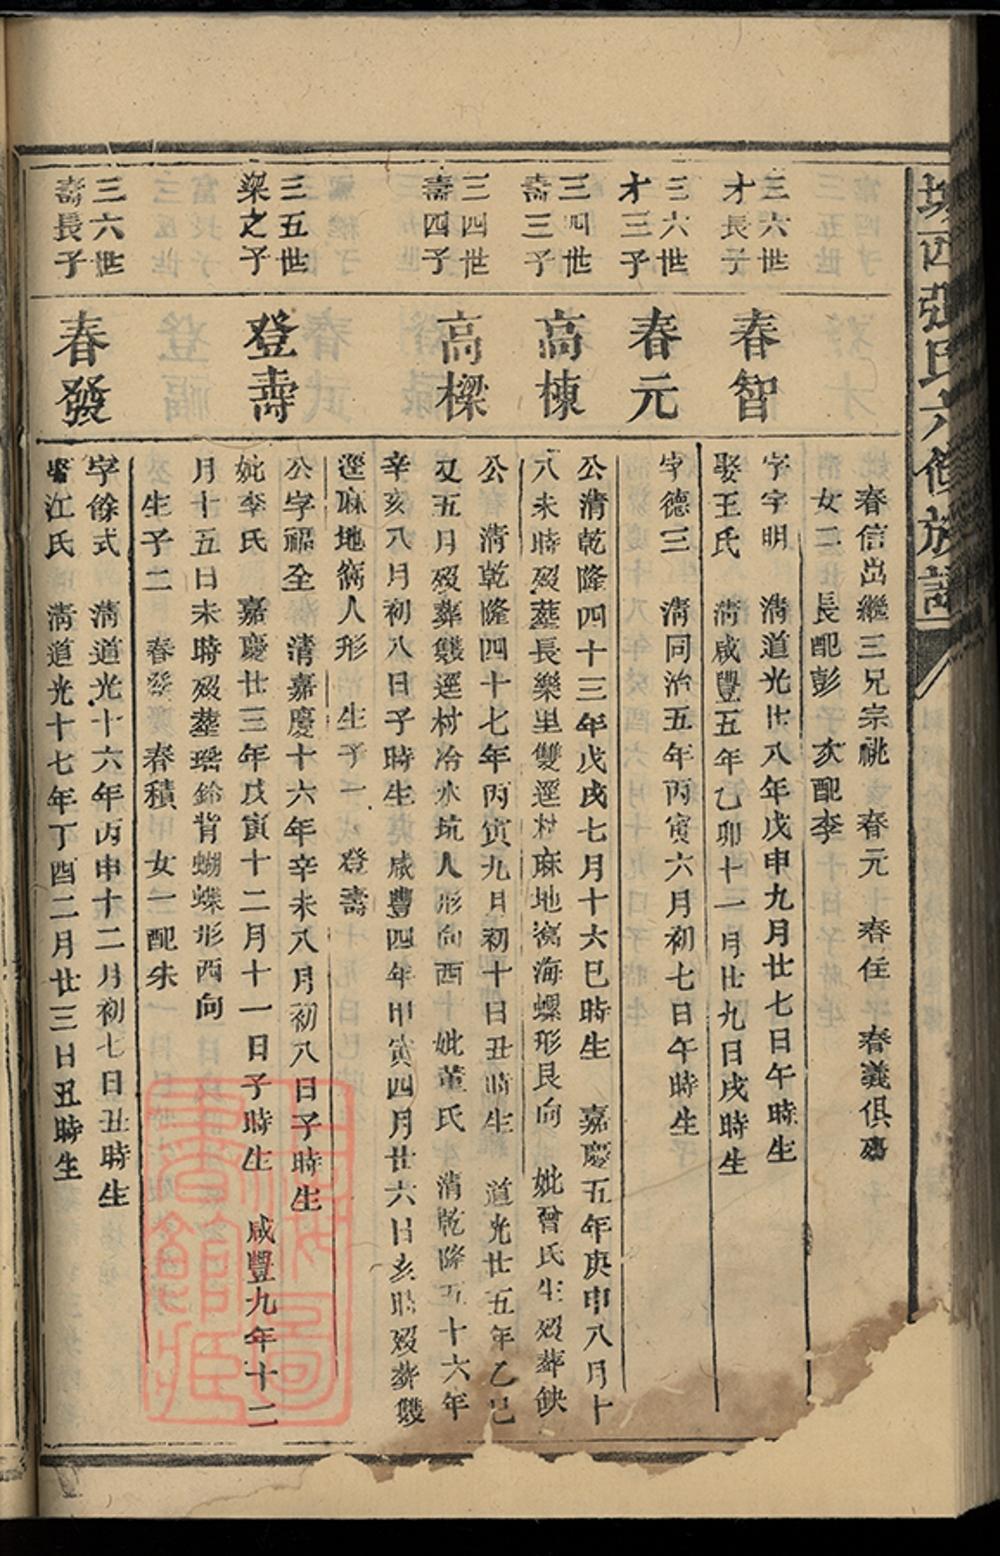 張氏六修族譜
三六世
才長子
三六世
才三子
三四世
壽三子
三四世
壽四子
三五世
梁之子
三六世
壽長子
春智
春元
高棟
高樑
登壽
春發
春信出繼三兄宗祧 春元 春任 春義俱殤
女二 長配彭 次配李
字字明 淸道光廿八年戊申九月廿七日午時生
娶王氏 淸咸豐五年乙卯十一月廿九日戌時生
字德三 淸同治五年丙寅六月初七日午時生
公淸乾隆四十三年戊戌七月十六巳時生 嘉慶五年庚申八月十
八未時歿葬長樂里雙逕村麻地窩海螺形艮向 妣曾氏生歿葬缺
公 淸乾隆四十七年丙寅九月初十日丑時生 道光廿五年乙巳
又五月歿葬雙逕村冷水坑人形向酉 妣董氏 淸乾隆五十六年
辛亥八月初八日子時生 咸豐四年甲寅四月廿六日亥時歿葬雙
逕麻地窩人形 生子一 登壽
公字福全 淸嘉慶十六年辛未八月初八日子時生
妣李氏 嘉慶廿三年戊寅十二月十一日子時生 咸豐九年十二
月十五日未時歿葬瑶鈴背蝴蝶形西向
生子二 春發 春積 女一配朱
字餘式 淸道光十六年丙申十二月初七日丑時生
娶江氏 淸道光十七年丁酉二月廿三日丑時生
上海圖書館藏